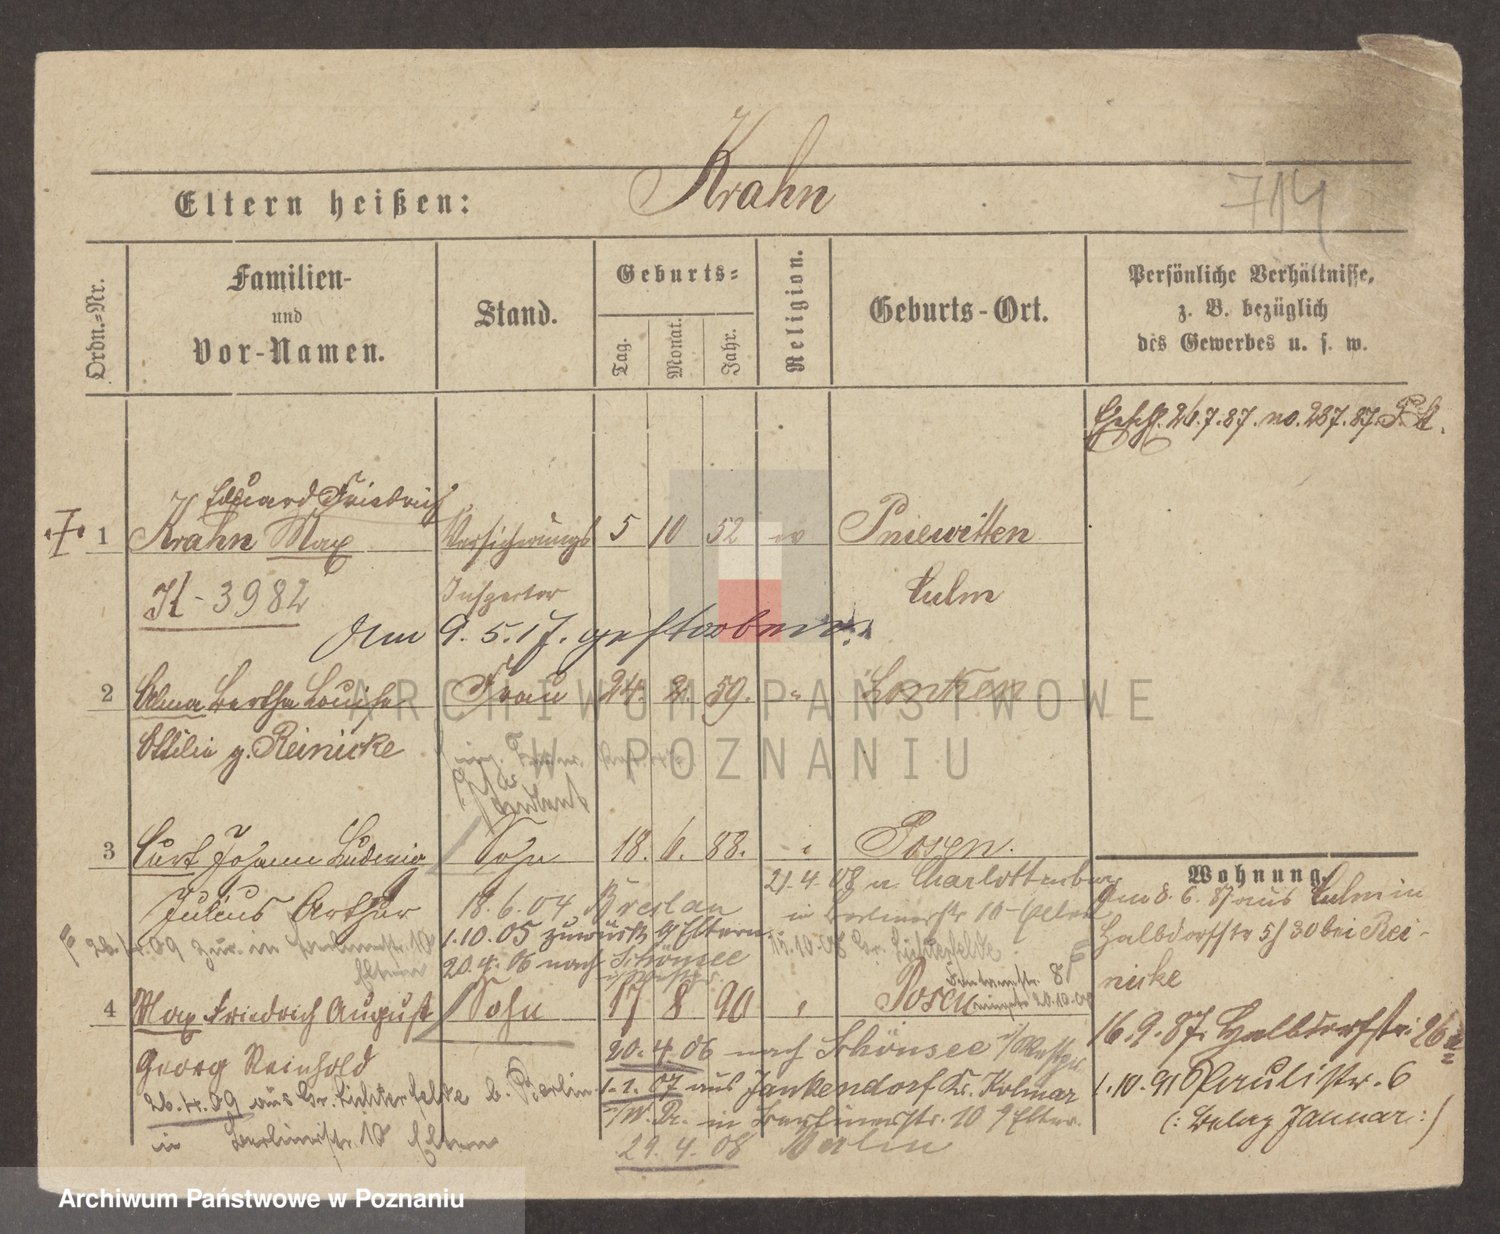 Krahn
Eltern heißen:
714
Ordn.-Nr.
Familien-
und
Vor-Namen.
Stand.
Geburts-
Tag.
Monat.
Jahr.
Religion.
Geburts-Ort.
Persönliche Verhältnisse,
z. B. bezüglich
des Gewerbes u. s. w.
26.7.87. no. 287.87.
Eduard Friedrich
1 Krahn Max Versicherungs 5 10 52 ev Pniewitten
K-3982 Inspector Culm
Am 9.5.17. gestorben.
2 Alma Bertha Louise Frau 24. 2. 59. " Lonken
Ottilie g. Reinicke
Student
3 Curt Johann Ludwig Sohn 18. 6. 88. " Posen.
Julius Arthur
18.6.04 Breslau
1.10.05 zurück z Eltern
20.4.06 nach Schönsee
21.4.08 n Charlottenburg
in Berlinerstr 10 Eltern
15.10.08 Gr. Lichterfelde
26.4.09 zur. in Berlinerstr. 10
Eltern
4 Max Friedrich August Sohn 17 8 90 " Posen
Georg Reinhold
20.4.06 nach Schönsee
26.4.09 aus Gr. Lichterfelde b. Berlin
in Berlinerstr. 10 Eltern
1.1.07 aus Jankendorf Kr. Kolmar
in Berlinerstr. 10 z Elter.
29.4.08 Berlin
Wohnung.
Am 8.6.87 aus Culm in
Halbdorfstr 5/30 bei Rei-
nicke
16.9.87. Halbdorfstr. 26
1.10.91 Paulistr. 6
(: Belag Januar :)
ARCHIWUM PAŃSTWOWE
W POZNANIU
Archiwum Państwowe w Poznaniu